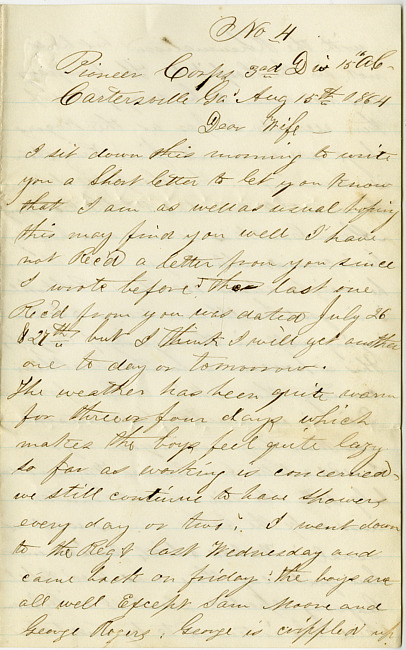 No 4
Pioneer Corps 3rd Div 15th A C
Cartersville Ga Aug 15th 1864
Dear Wife
I sit down this morning to write
you a Short letter to let you know
that I am as well as usual hoping
this may find you well I have
not Rec'd a letter from you since
I wrote before. The last one
Rec'd from you was dated July 26
& 27th but I think I will get another
one to day or tomorrow.
The weather has been quite warm
for three or four days which
makes the boys feel quite lazy
so far as working is concerned
we still continue to have showers
every day or two. I went down
to the Regt last Wednesday and
came back on friday: the boys are
all well Except Sam Moore and
George Rogers. George is crippled up